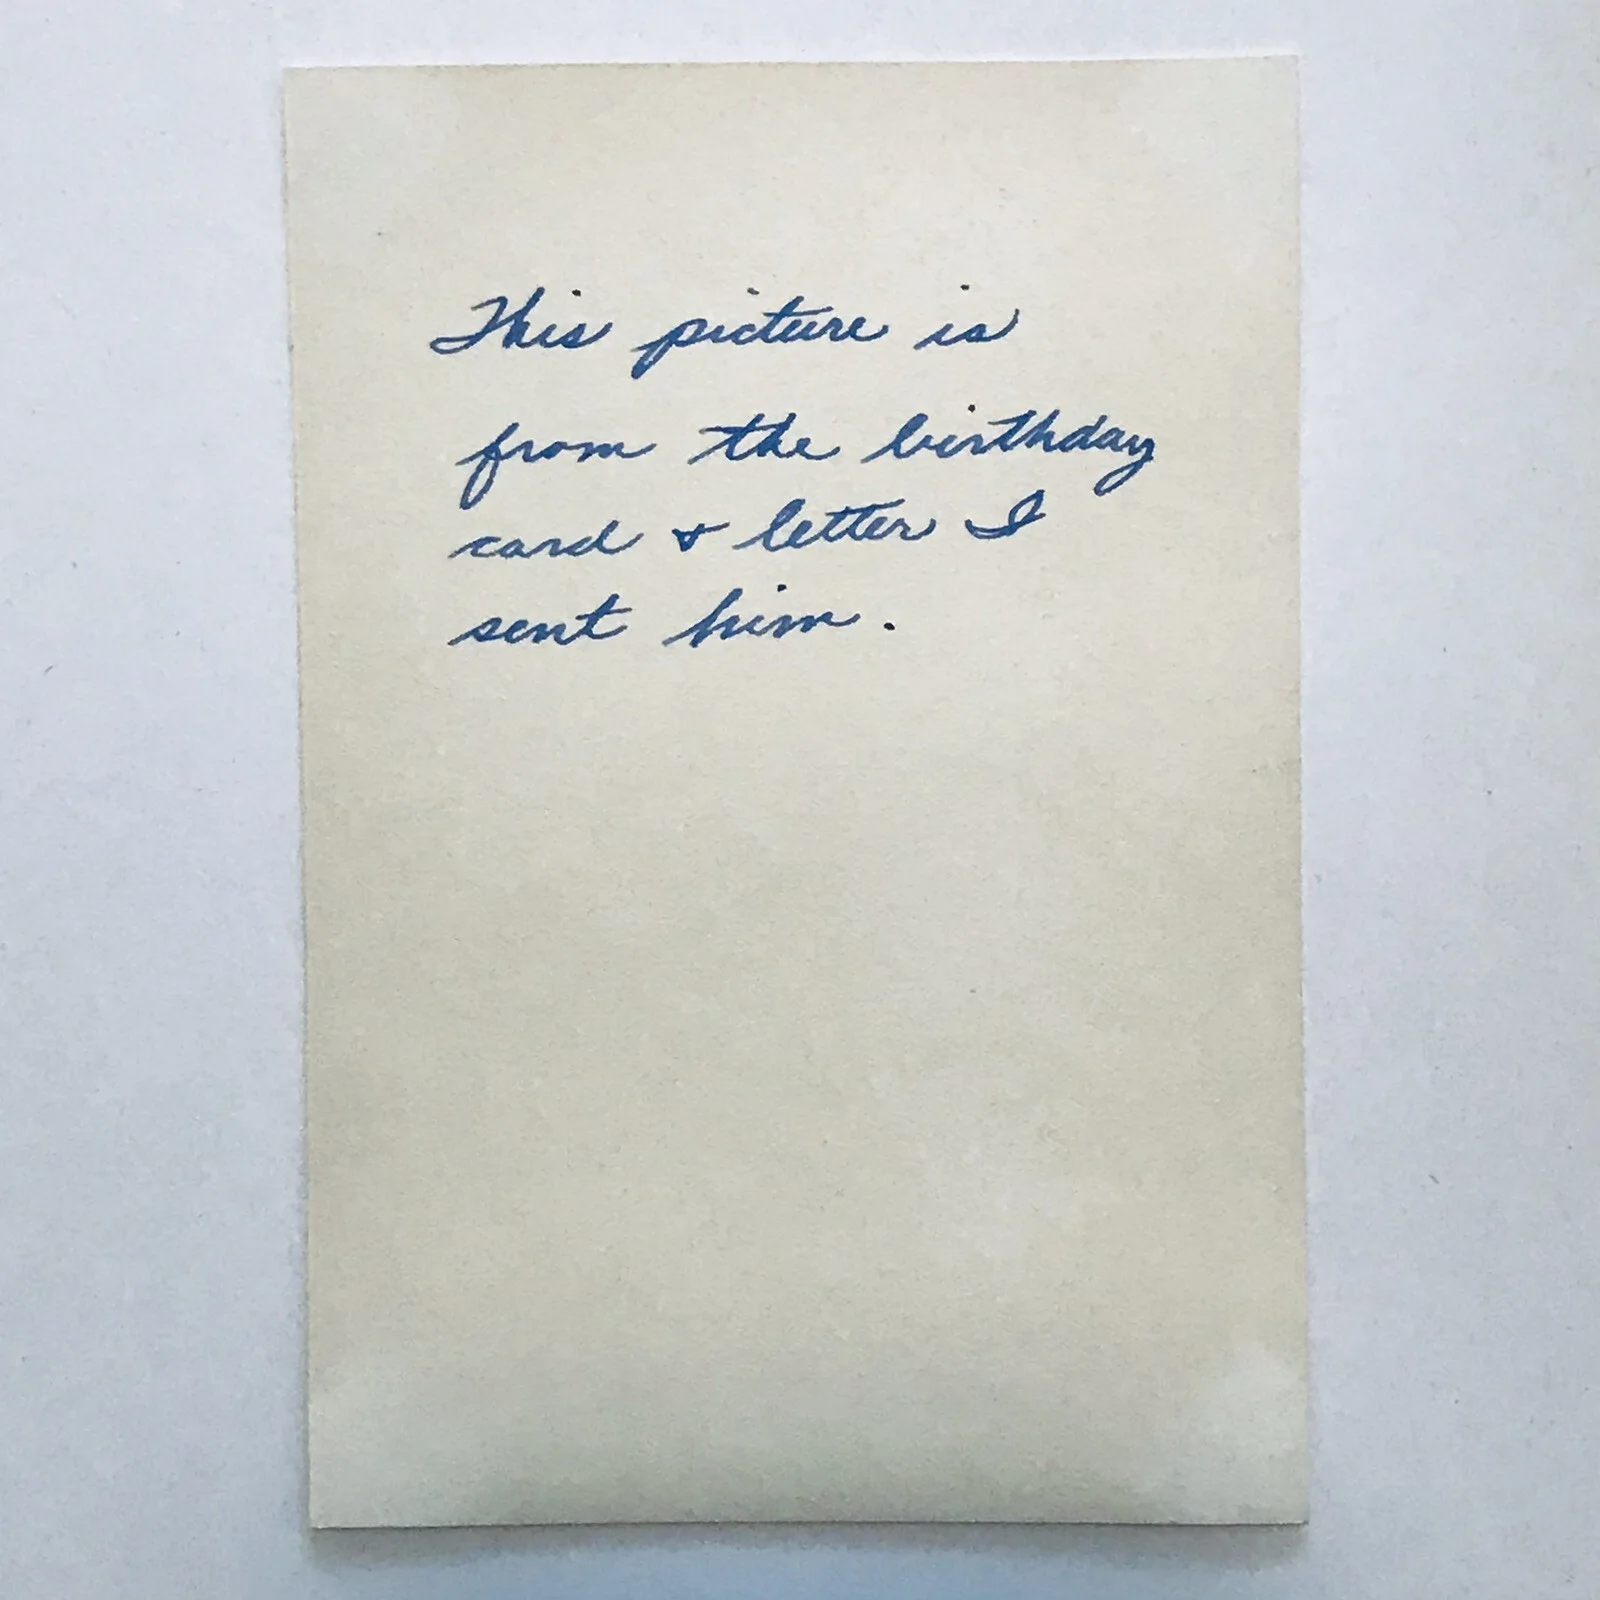 This picture is
from the birthday
card & letter I
sent him.